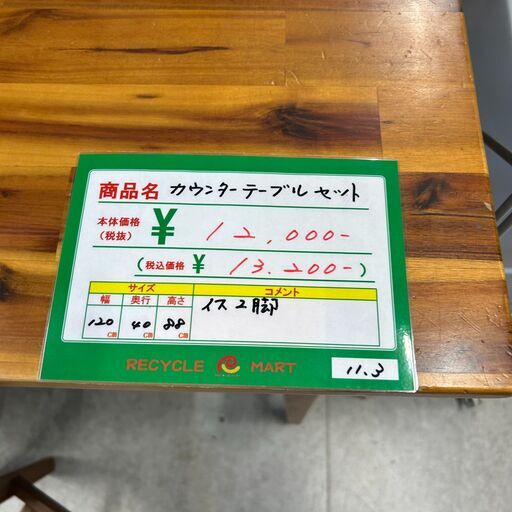 商品名 カウンターテーブルセット
本体価格 (税抜) ¥ 12,000-
(税込価格 ¥ 13.200-)
サイズ コメント
幅 奥行 高さ イス2脚
120cm 40cm 88cm
RECYCLE MART 11.3